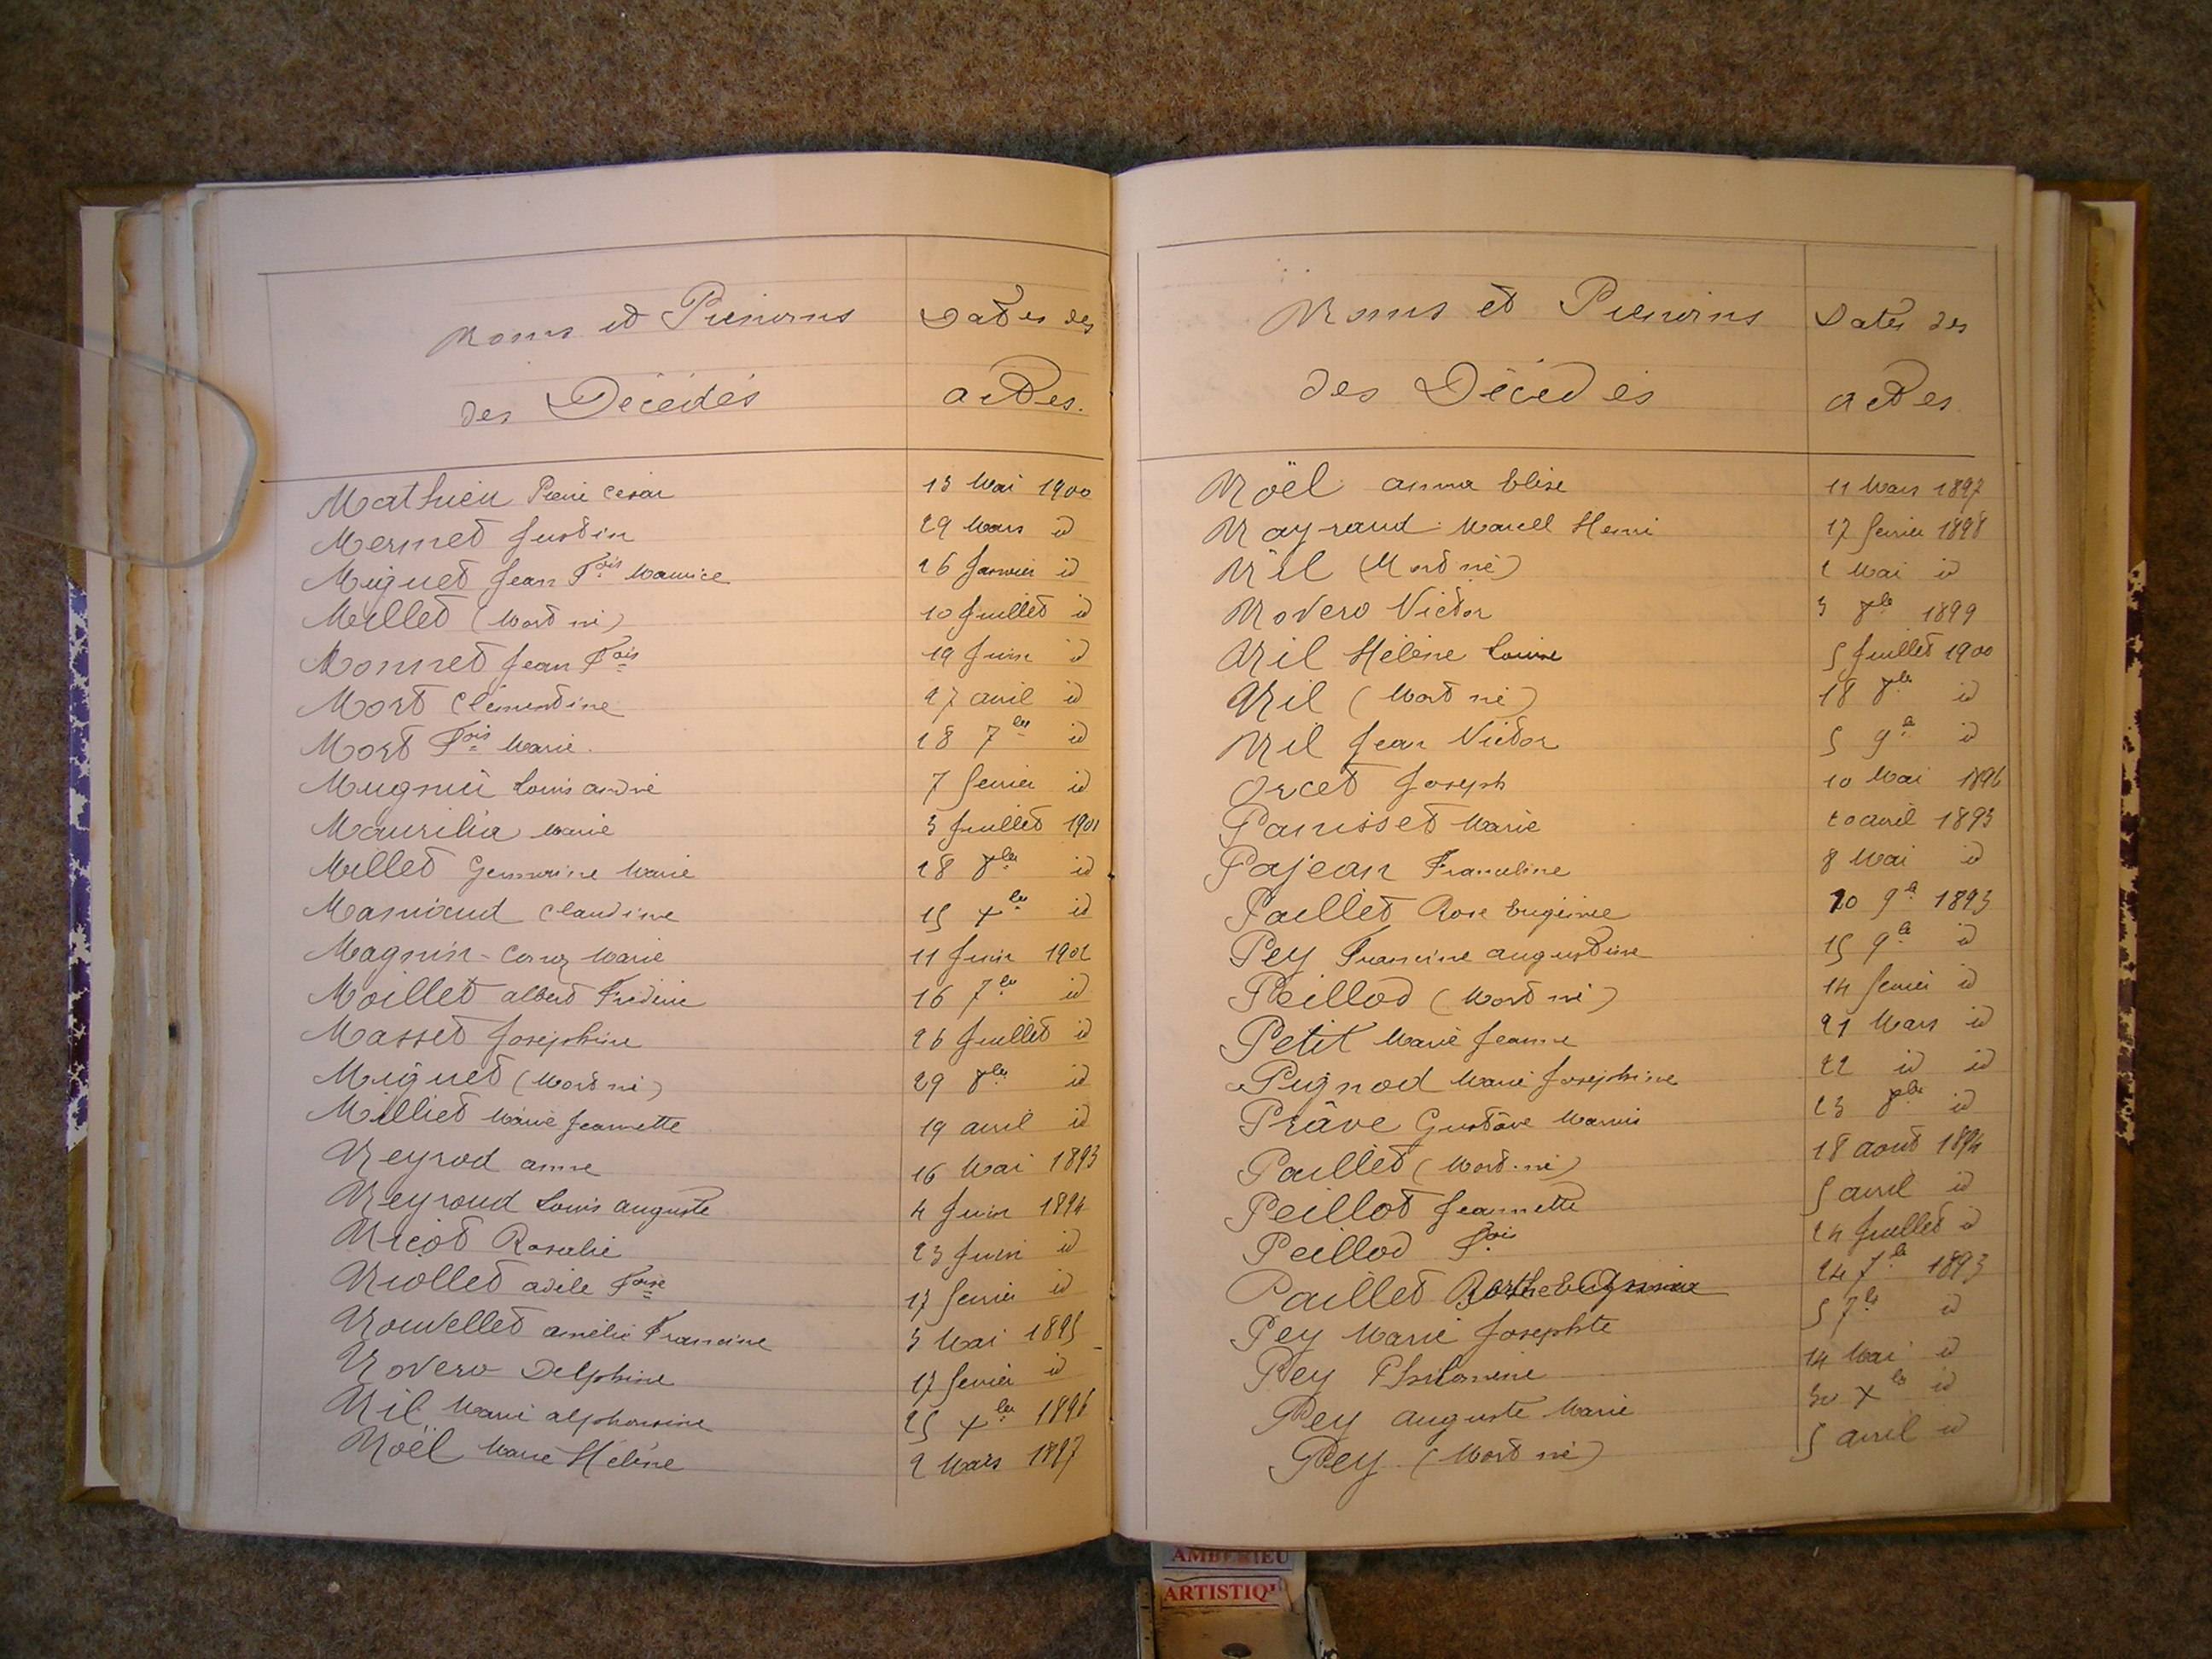 Noms et Prénoms Dates des
des Décédés actes.
Mathieu Pierre Cesar 13 Mai 1900
Mermet Justin 29 Mars id
Miguet Jean Fois Maurice 26 Janvier id
Millet (Mort né) 10 Juillet id
Monnet Jean Fois 19 Juin id
Mort Clémentine 27 avril id
Mort Fois Marie 28 7bre id
Mugnié Louis andré 7 fevrier id
Maurilia Marie 3 Juillet 1901
Millet Germaine Marie 28 8bre id
Claudine 15 xbre id
Magnin- Marie 11 Juin 1902
Moillet albert 16 7bre id
Masset Joséphine 26 Juillet id
Miguet (Mort né) 29 8bre id
Milliet Marie Jeannette 19 avril id
Neyrod anne 16 Mai 1893
Neyroud Louis auguste 4 Juin 1894
Niçot Rosalie 23 Juin id
Niollet adèle Foise 17 fevrier id
Nouvellet amélie Francine 3 Mai 1895
Novero Delphine 17 fevrier id
Nil Marie alphonsine 25 xbre 1896
Noël Marie Hélène 2 Mars 1897
Noms et Prénoms Dates des
des Décédés actes
Noël anna Elise 11 Mars 1897
Nayraud Marcel Henri 17 fevrier 1898
Nil (Mort né) 2 Mai id
Novero Victor 3 8bre 1899
Nil Hélène Louise 5 Juillet 1900
Nil (Mort né) 18 8bre id
Nil Jean Victor 5 9b id
Orcet Joseph 10 Mai 1896
Panisset Marie 20 avril 1893
Pajean Franceline 8 Mai id
Paillet Rose Eugénie 20 9b 1893
Pey Francine augustine 15 9b id
Peillod (Mort né) 14 fevrier id
Petit Marie Jeanne 21 Mars id
Pugnod Marie Joséphine 22 id id
Prâve Gustave Marius 23 8bre id
Paillet (Mort-né) 18 aout 1894
Peillot Jeannette 5 avril id
Peillod Fois 24 Juillet id
Paillet 24 7b 1893
Pey Marie Josephte 5 7b id
Pey Philomène 14 Mai id
Pey auguste Marie 30 xbre id
Pey (Mort né) 5 avril id
AMBERIEU
ARTISTIQ